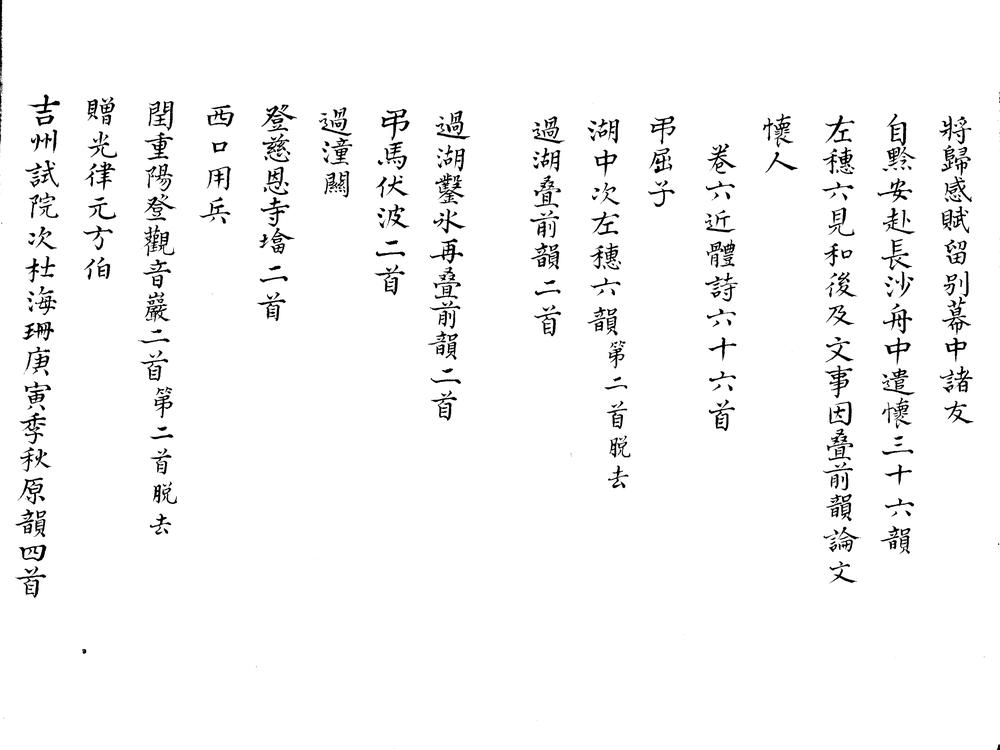 將歸感賦留别幕中諸友
自黔安赴長沙舟中遣懷三十六韻
左穗六見和後及文事因叠前韻論文
懷人
卷六近體詩六十六首
弔屈子
湖中次左穗六韻第二首脱去
過湖叠前韻二首
過湖鑿氷再叠前韻二首
弔馬伏波二首
過潼關
登慈恩寺墖二首
西口用兵
閏重陽登觀音巖二首第二首脱去
贈光律元方伯
吉州試院次杜海珊庚寅季秋原韻四首